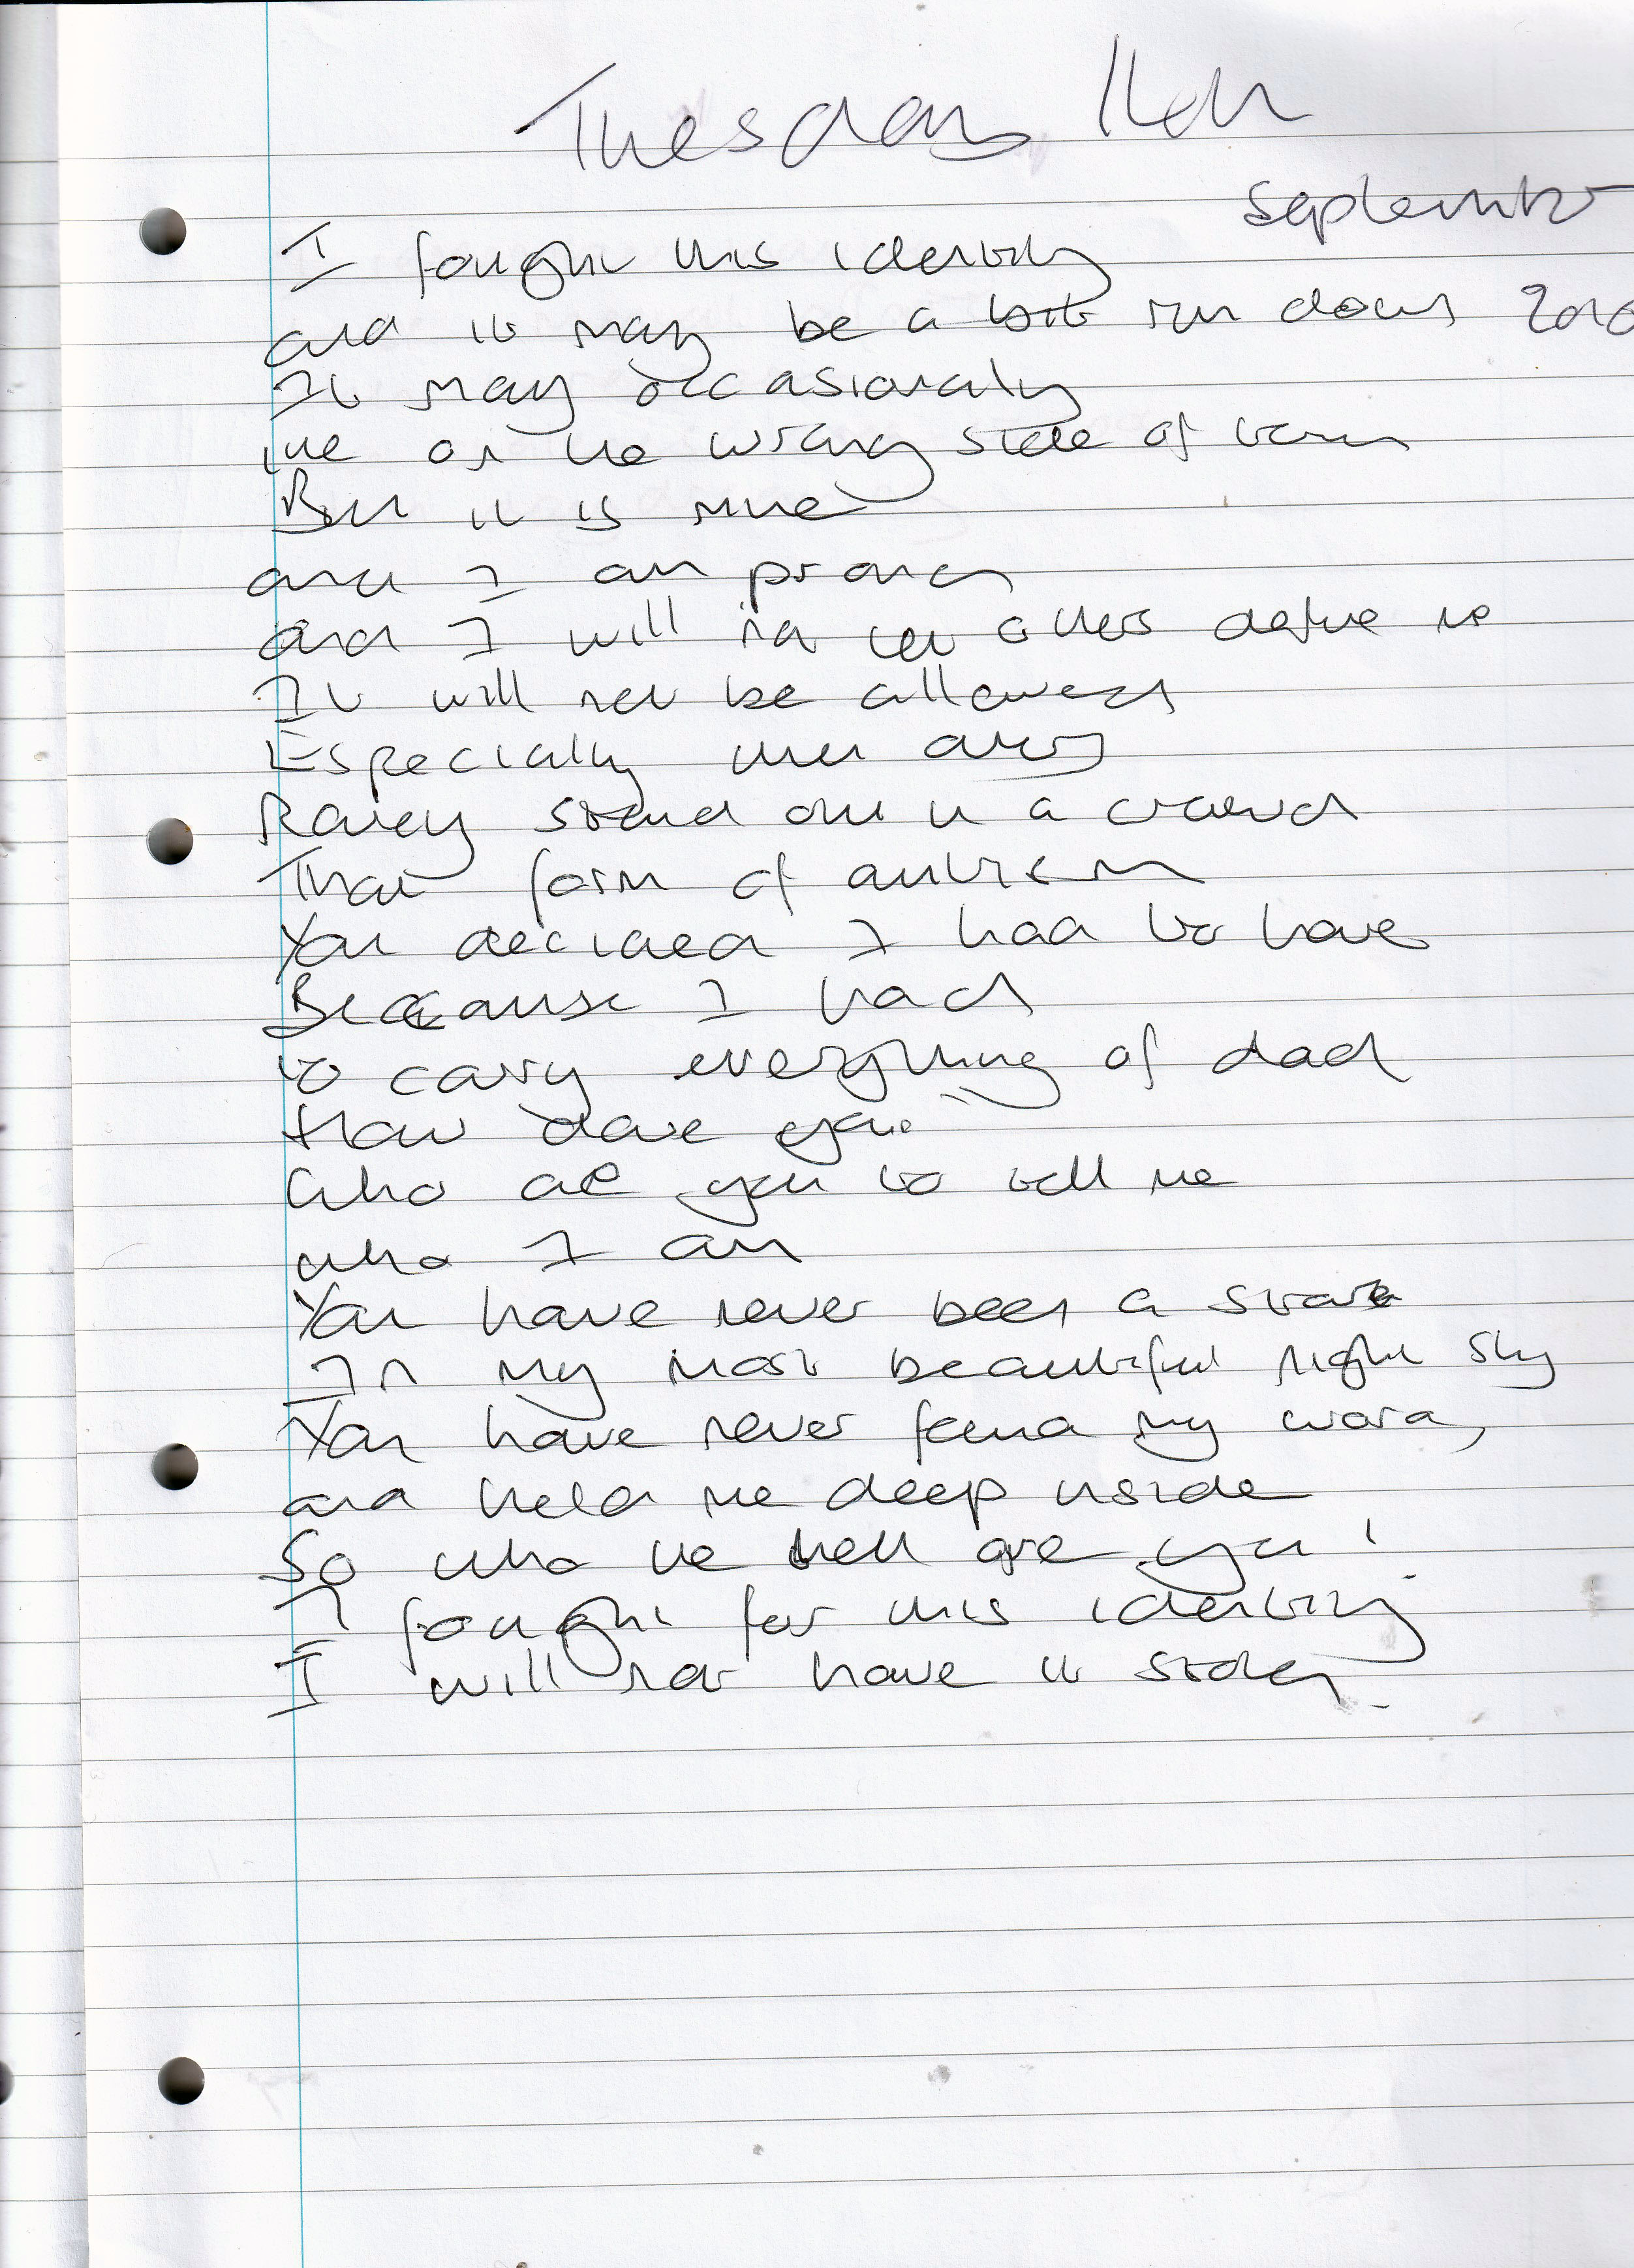 Tuesday 11th
September
I fought this identity
and it may be a bit run down 201
It may occasionally
live on the wrong side of town
But it is mine
and I am proud
and I will not let others define me
It will not be allowed
Especially when they
Rarely stand out in a crowd
That form of autism
You decided I had to have
Because I had
to carry everything of dad
How dare you
Who are you to tell me
who I am
You have never been a star
In my most beautiful night sky
You have never found my world,
and held me deep inside
So who the hell are you!
I fought for this identity
I will not have it stolen.